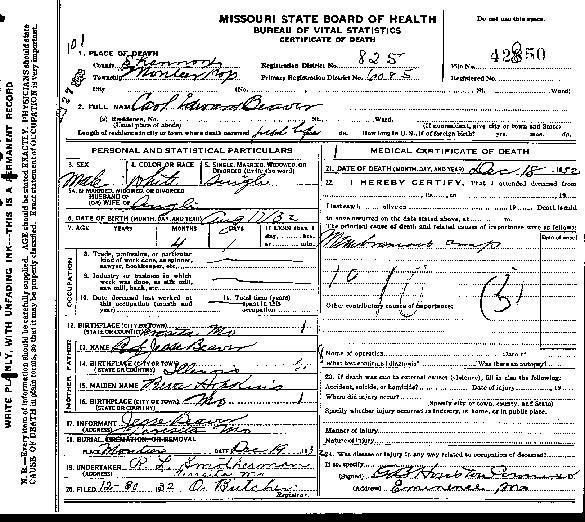 MISSOURI STATE BOARD OF HEALTH
BUREAU OF VITAL STATISTICS
CERTIFICATE OF DEATH
Do not use this space.
1. PLACE OF DEATH
County Shannon
Registration District No. 825
File No.
Township
Primary Registration District No. 6085
Registered No.
City (No. St. Ward)
2. FULL NAME Carl Edward Beaver
(a) Residence, No. St. Ward.
(Usual place of abode) (If nonresident, give city or town and State)
Length of residence in city or town where death occurred yrs. mos. ds. How long in U.S., if of foreign birth? yrs. mos. ds.
PERSONAL AND STATISTICAL PARTICULARS
3. SEX Male
4. COLOR OR RACE White
5. SINGLE, MARRIED, WIDOWED, OR DIVORCED (write the word) Single
5A. IF MARRIED, WIDOWED, OR DIVORCED HUSBAND OF (OR) WIFE OF Single
6. DATE OF BIRTH (MONTH, DAY, AND YEAR) Aug 17/32
7. AGE YEARS MONTHS 4 DAYS 1
8. Trade, profession, or particular kind of work done, as spinner, sawyer, bookkeeper, etc.
9. Industry or business in which work was done, as silk mill, saw mill, bank, etc.
10. Date deceased last worked at this occupation (month and year)
11. Total time (years) spent in this occupation
OCCUPATION
12. BIRTHPLACE (CITY OR TOWN) (STATE OR COUNTRY) Mo
FATHER
13. NAME Jesse Beaver
14. BIRTHPLACE (CITY OR TOWN) (STATE OR COUNTRY) Illinois
MOTHER
15. MAIDEN NAME
16. BIRTHPLACE (CITY OR TOWN) (STATE OR COUNTRY) Mo
17. INFORMANT Jesse Beaver
(ADDRESS) Mo
18. BURIAL, CREMATION OR REMOVAL
PLACE DATE Dec 19
19. UNDERTAKER
(ADDRESS) Mo
20. FILED 12-30 32 O. Butcher
Registrar.
MEDICAL CERTIFICATE OF DEATH
21. DATE OF DEATH (MONTH, DAY, AND YEAR) Dec 18 1932
22. I HEREBY CERTIFY, That I attended deceased from
I last saw h alive on 19 Death is said
to have occurred on the date stated above, at m.
The principal cause of death and related causes of importance were as follows:
Membranous croup
Date of onset
10
Other contributory causes of importance:
Name of operation Date of
What test confirmed diagnosis? Was there an autopsy?
23. If death was due to external causes (violence), fill in also the following:
Accident, suicide, or homicide? Date of injury 19
Where did injury occur?
(Specify city or town, county, and State)
Specify whether injury occurred in industry, in home, or in public place.
Manner of injury
Nature of injury
24. Was disease or injury in any way related to occupation of deceased?
If so, specify
(Signed)
(Address) Eminence Mo
WRITE PLAINLY, WITH UNFADING INK—THIS IS A PERMANENT RECORD
N. B.—Every item of information should be carefully supplied. AGE should be stated EXACTLY. PHYSICIANS should state
CAUSE OF DEATH in plain terms, so that it may be properly classified. Exact statement of OCCUPATION is very important.